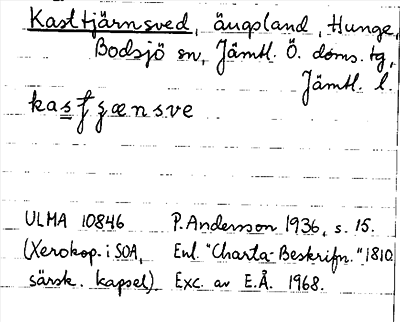 Kasttjärnsved, ängsland, Hunge,
Bodsjö sn, Jämtl. Ö. doms. tg,
Jämtl. l.
ULMA 10846 P. Andersson 1936, s. 15.
(Xerokop. i SOA, Enl. "Charta-Beskrifn." 1810
särsk. kapsel). Exc. av E.Å. 1968.